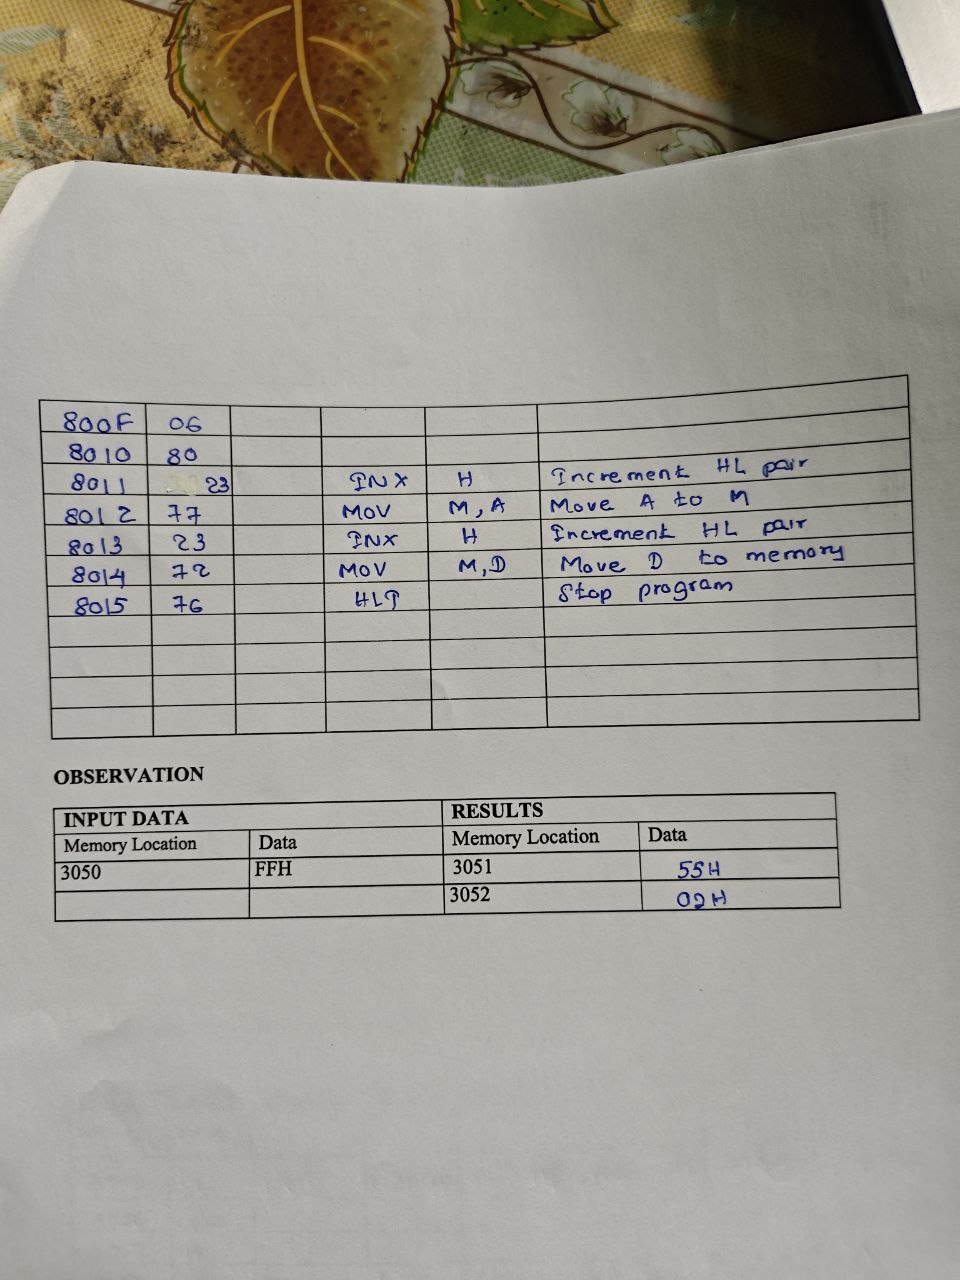 800F 06
8010 80
8011 23 INX H Increment HL pair
8012 77 MOV M, A Move A to M
8013 23 INX H Increment HL pair
8014 72 MOV M,D Move D to memory
8015 76 HLT Stop program
OBSERVATION
INPUT DATA RESULTS
Memory Location Data Memory Location Data
3050 FFH 3051 55H
3052 02H